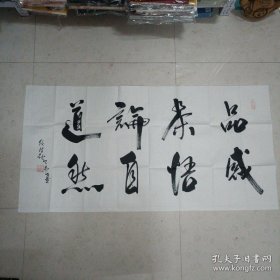 品茶論道
感悟自然
孔夫子旧书网